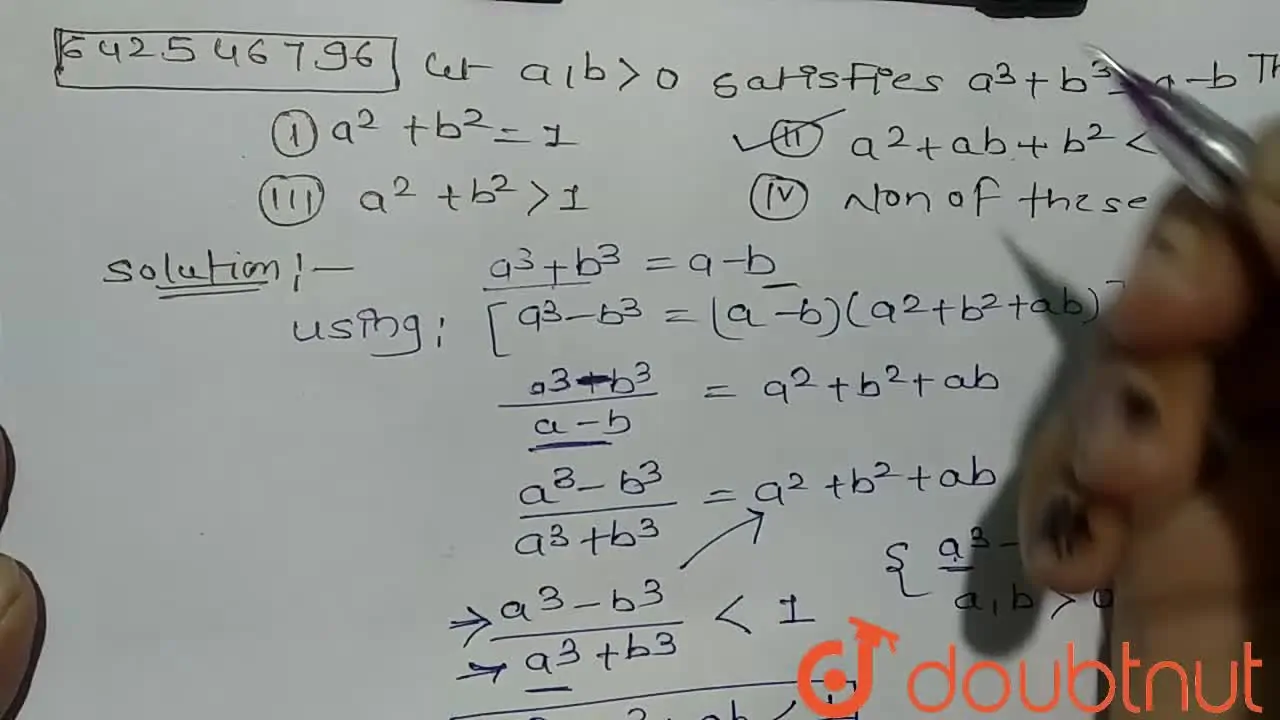 642546796 Let a,b>0 satisfies a³+b³=a-b Th
Ⓘ a²+b²=1 ✓ⓘⓘ a²+ab+b²<
(III) a²+b²>1 (IV) Non of these
Solution:-
a³+b³=a-b
using: [a³-b³=(a-b)(a²+b²+ab)
a³-b³/a-b = a²+b²+ab
a³-b³/a³+b³ = a²+b²+ab
{ a³-
a,b>0
⇒ a³-b³/a³+b³ < 1
doubtnut